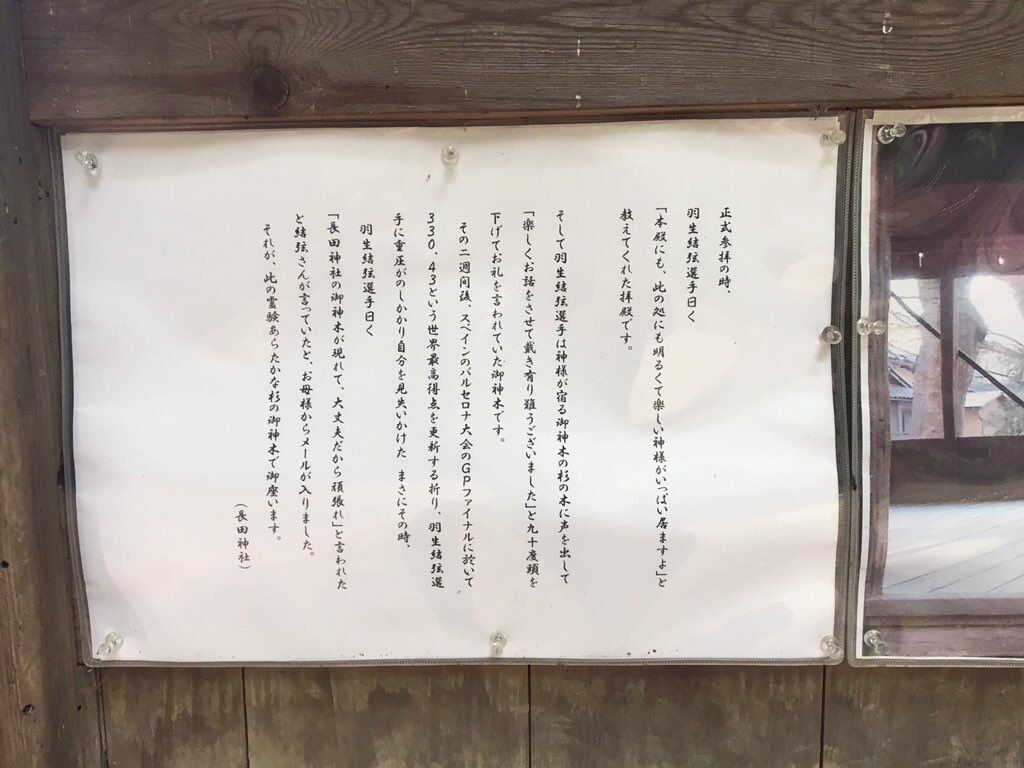 正式参拝の時、
羽生結弦選手曰く
「本殿にも、此の処にも明るくて楽しい神様がいっぱい居ますよ」と
教えてくれた拝殿です。
そして羽生結弦選手は神様が宿る御神木の杉の木に声を出して
「楽しくお話をさせて戴き有り難うございました」と九十度頭を
下げてお礼を言われていた御神木です。
その二週間後、スペインのバルセロナ大会のGPファイナルに於いて
330.43という世界最高得点を更新する折り、羽生結弦選
手に重圧がのしかかり自分を見失いかけた まさにその時、
羽生結弦選手曰く
「長田神社の御神木が現れて、大丈夫だから頑張れ」と言われた
と結弦さんが言っていたと、お母様からメールが入りました。
それが、此の霊験あらたかな杉の御神木で御座います。
（長田神社）